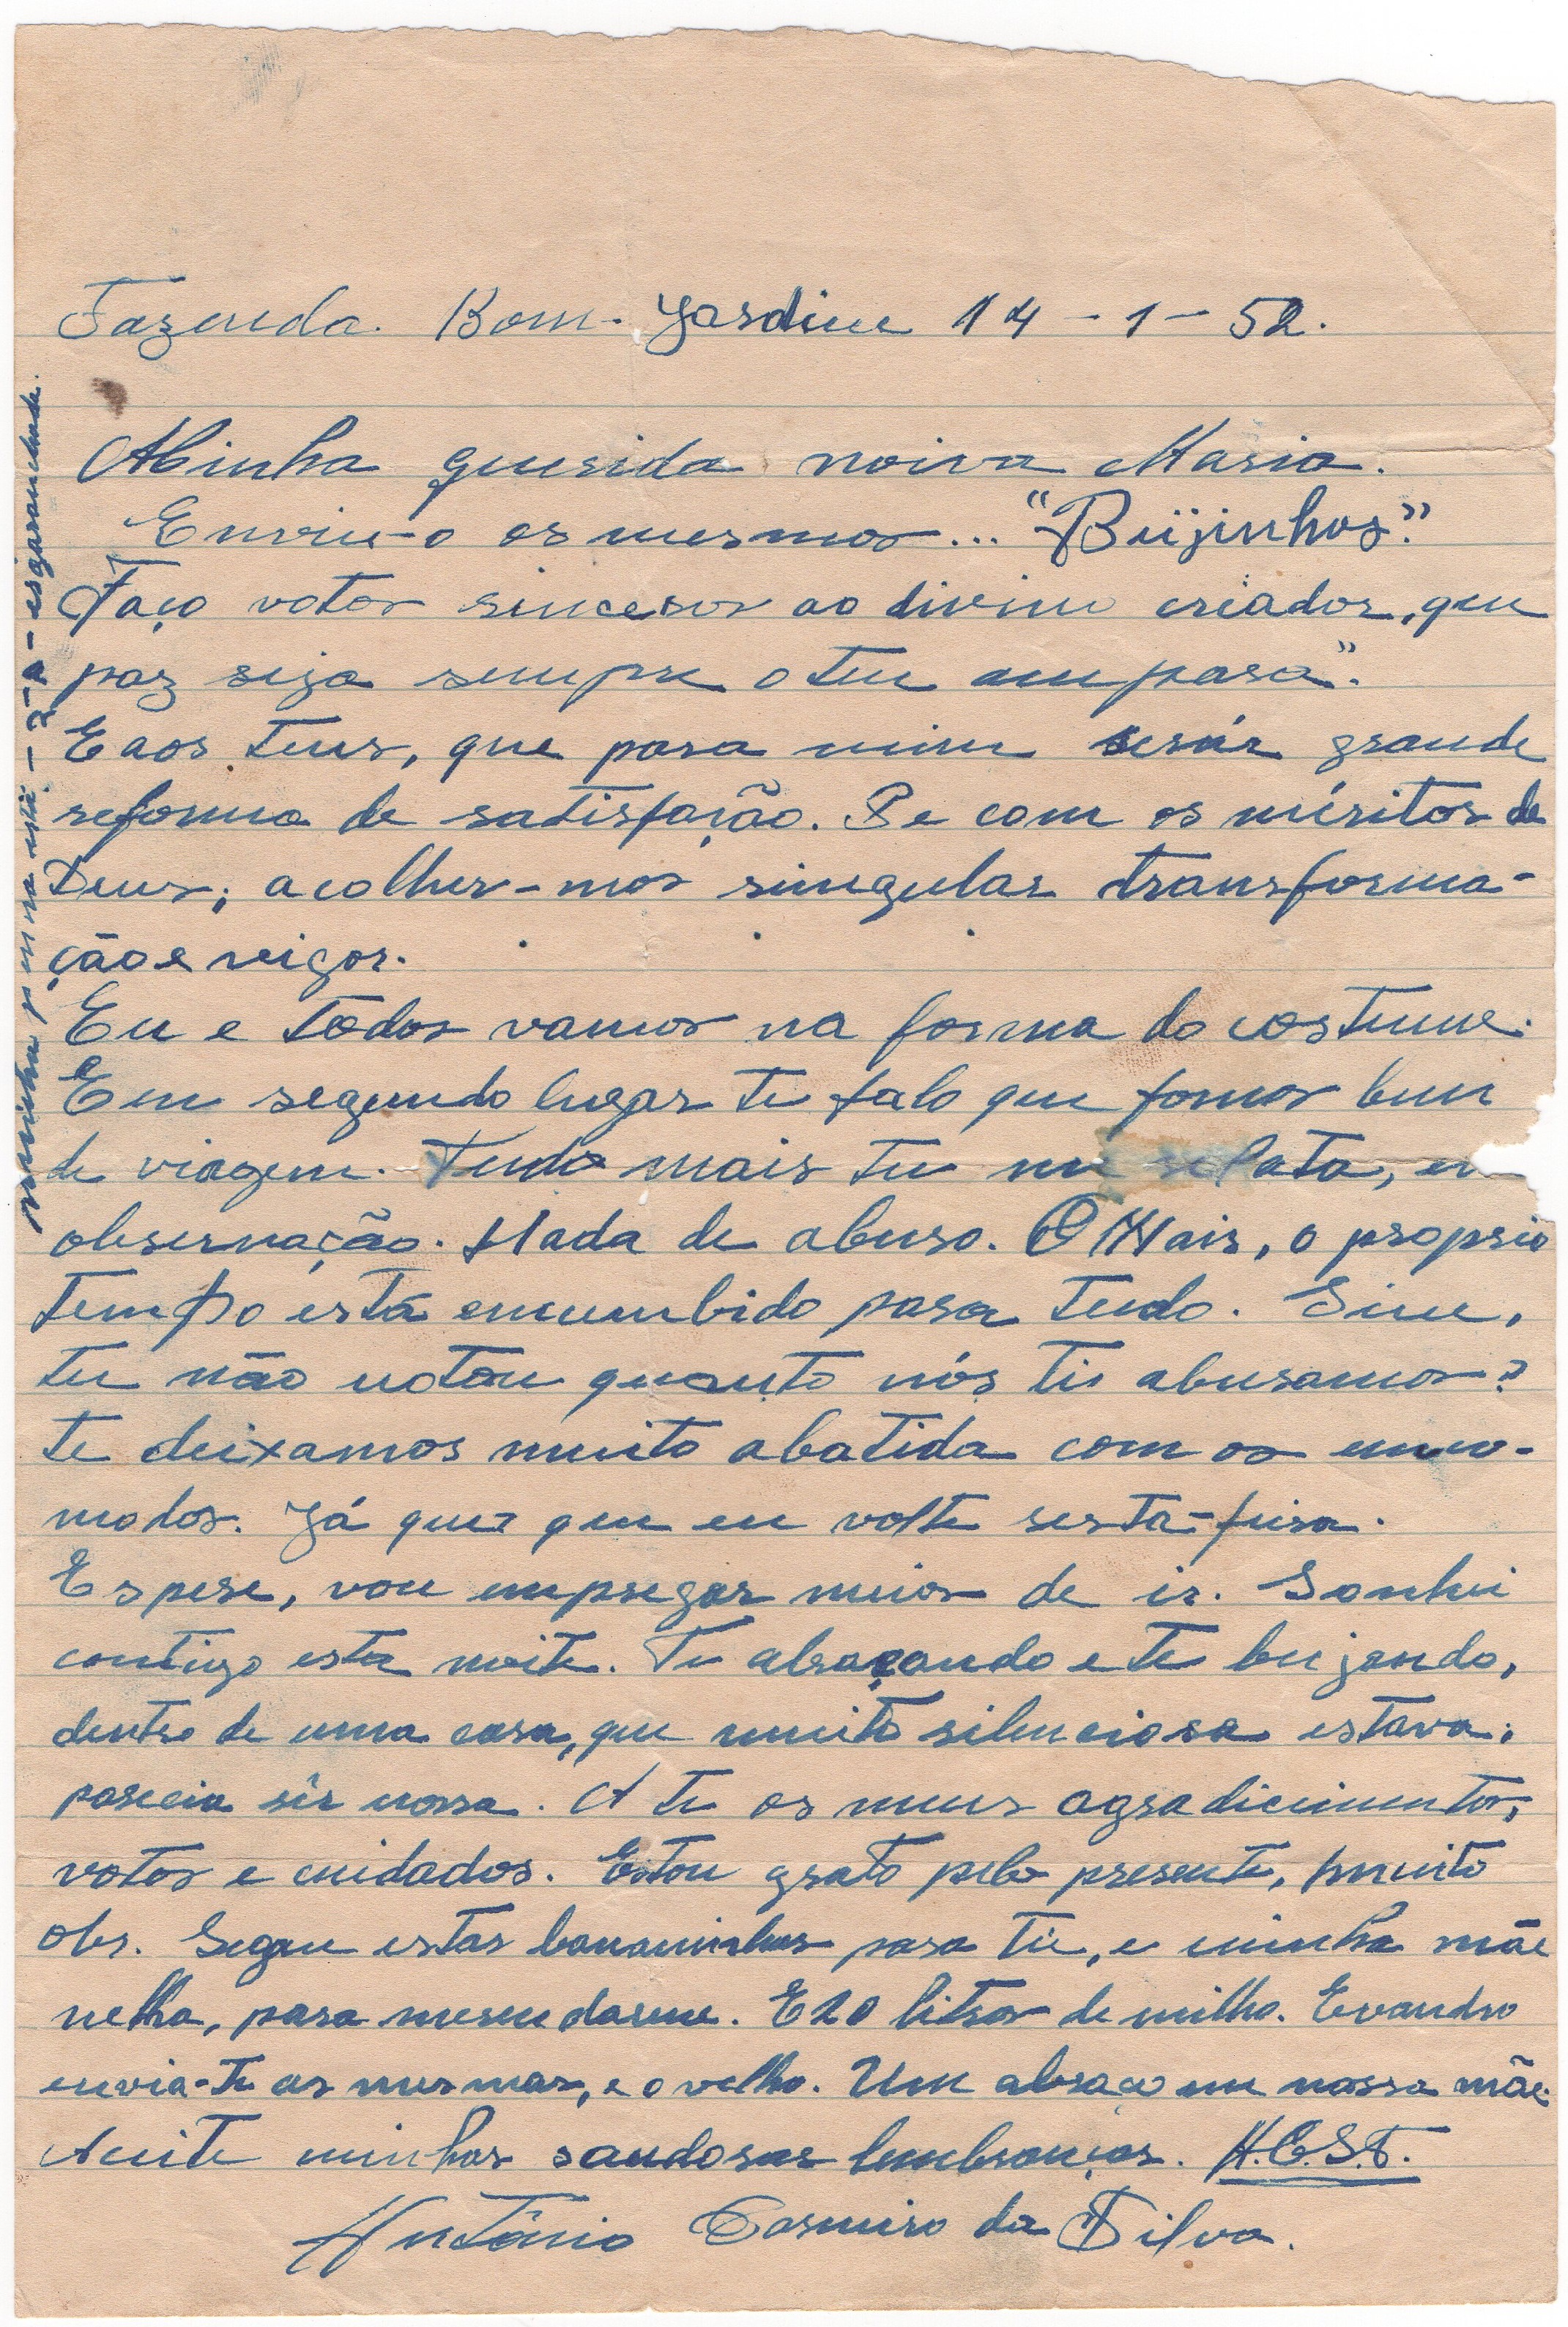 Fazenda. Bom-Jardim 14-1-52.
Minha querida noiva Maria.
Enviu-o os mesmos... "Beijinhos".
Faço votos sinceros ao divino criador, que
paz seja sempre o teu amparo".
E aos teus, que para mim serár grande
reforma de satisfação. Se com os méritos de
Deus; acolher-mos singular transforma-
ção e vigor.
Eu e todos vamos na forma do costume.
E em segundo lugar te falo que fomos bem
de viagem. Tudo mais tu me relata, em
observação. Nada de abuso. O Mais, o proprio
tempo está encumbido para tudo. Sim,
tu não notou quanto nós tis abusamos?
te deixamos muito abatida com os enco-
modos. Já quer que eu volte sesta-feira.
Espere, vou empregar meios de ir. Sonhei
contigo esta noite. Tu abraçando e te beijando,
dentro de uma casa, que muito silenciosa estava.
parecia sêr nossa. A te os meus agradicimentos,
votos e cuidados. Estou grato pelo presente, muito
obs. Segue estas bananinhas para tie, e minha mãe
velha, para merendarem. E 20 litros de milho. Evandro
envia-te as mesmas, e o velho. Um abraço em nossa mãe.
Aceite minhas saudosas lembranças. H.C.S.T.
Antônio Casmiro da Silva.
minha pena está - z-a- esgaranchada.